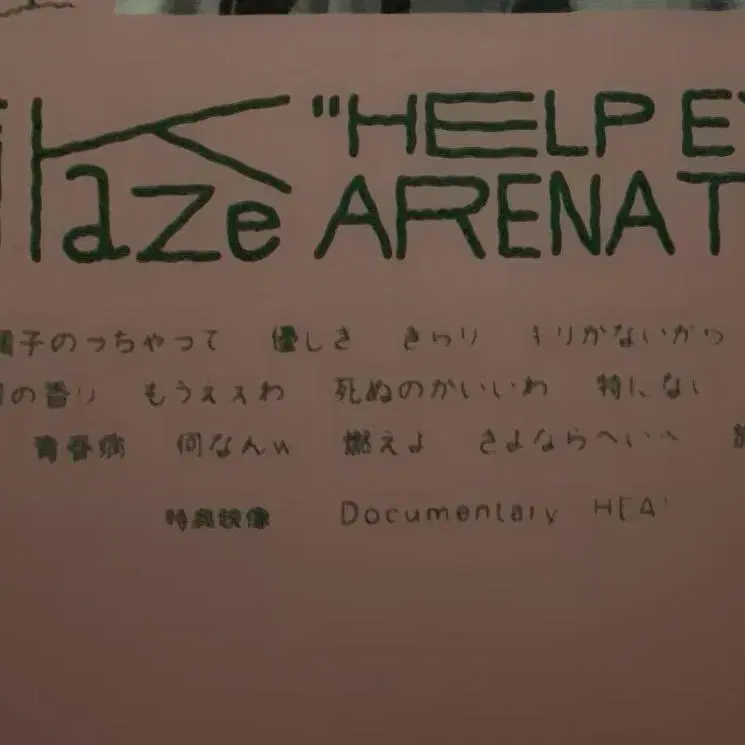 Kaze "HELP E
ARENA T
子のっちゃって 優しさ きらり キリがないから
の香り もうええわ 死ぬのがいいわ 特にない
青春病 何なんw 燃えよ さよならべいべ
特典映像 Documentary HEA